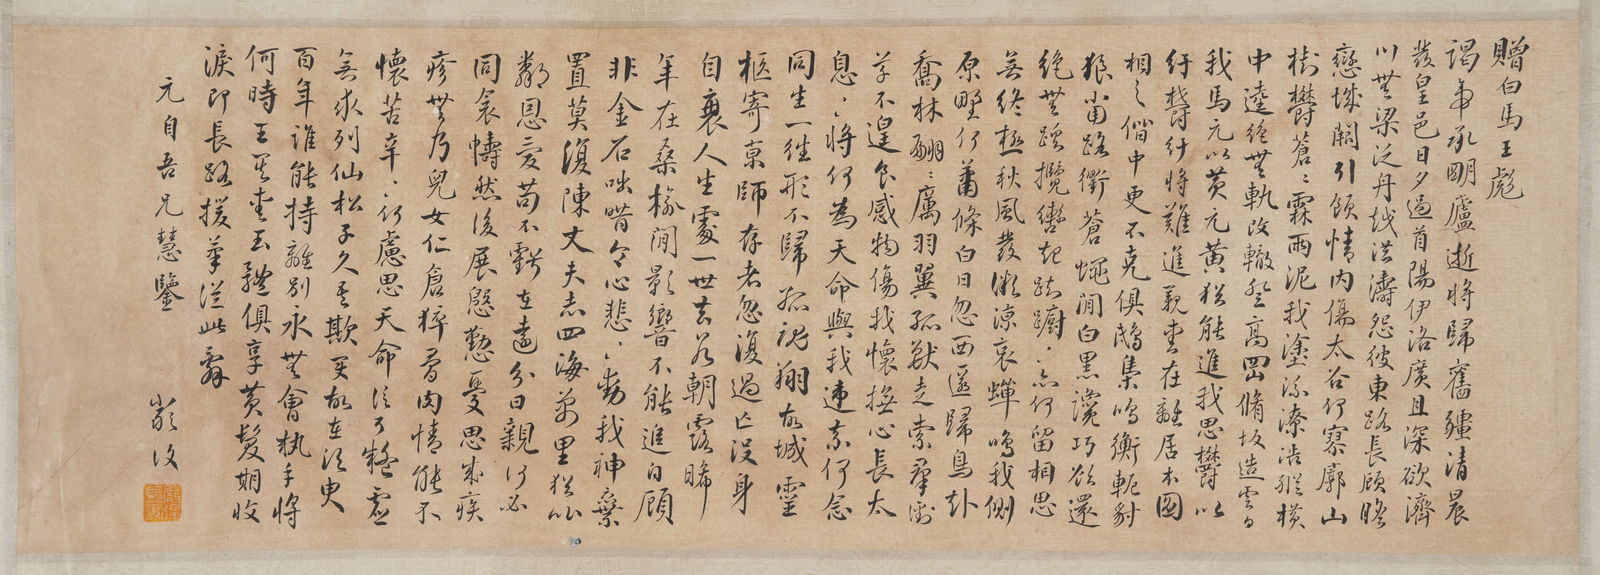 贈白馬王彪
謁帝承明廬逝將歸舊疆清晨
發皇邑日夕過首陽伊洛廣且深欲濟
川無梁泛舟越洪濤怨彼東路長顧瞻
戀城闕引領情內傷太谷何寥廓山
樹鬱蒼蒼霖雨泥我塗流潦浩縱橫
中逵絕無軌改轍登高岡脩坂造雲日
我馬玄以黃玄黃猶能進我思鬱以
紆鬱紆將難進親愛在離居本圖
相與偕中更不克俱鴟梟鳴衡軛豺
狼當路衢蒼蠅間白黑讒巧欲還
絕無蹊攬轡起踟躕踟躕亦何留相思
無終極秋風發微涼寒蟬鳴我側
原野何蕭條白日忽西匿歸鳥赴
喬林翩翩厲羽翼孤獸走索羣銜
草不遑食感物傷我懷撫心長太
息太息將何為天命與我違奈何念
同生一往形不歸孤魂翔故城靈
柩寄京師存者忽復過亡沒身
自衰人生處一世去若朝露晞
年在桑榆間影響不能追自顧
非金石咄唶令心悲心悲動我神棄
置莫復陳丈夫志四海萬里猶比
鄰恩愛苟不虧在遠分日親何必
同衾幬然後展慇懃憂思成疾
疹無乃兒女仁倉猝骨肉情能不
懷苦辛苦辛何慮思天命信可疑虛
無求列仙松子久吾欺變故在須臾
百年誰能持離別永無會執手將
何時王其愛玉體俱享黃髮期收
淚即長路援筆從此辭
元自吾兄慧鑒